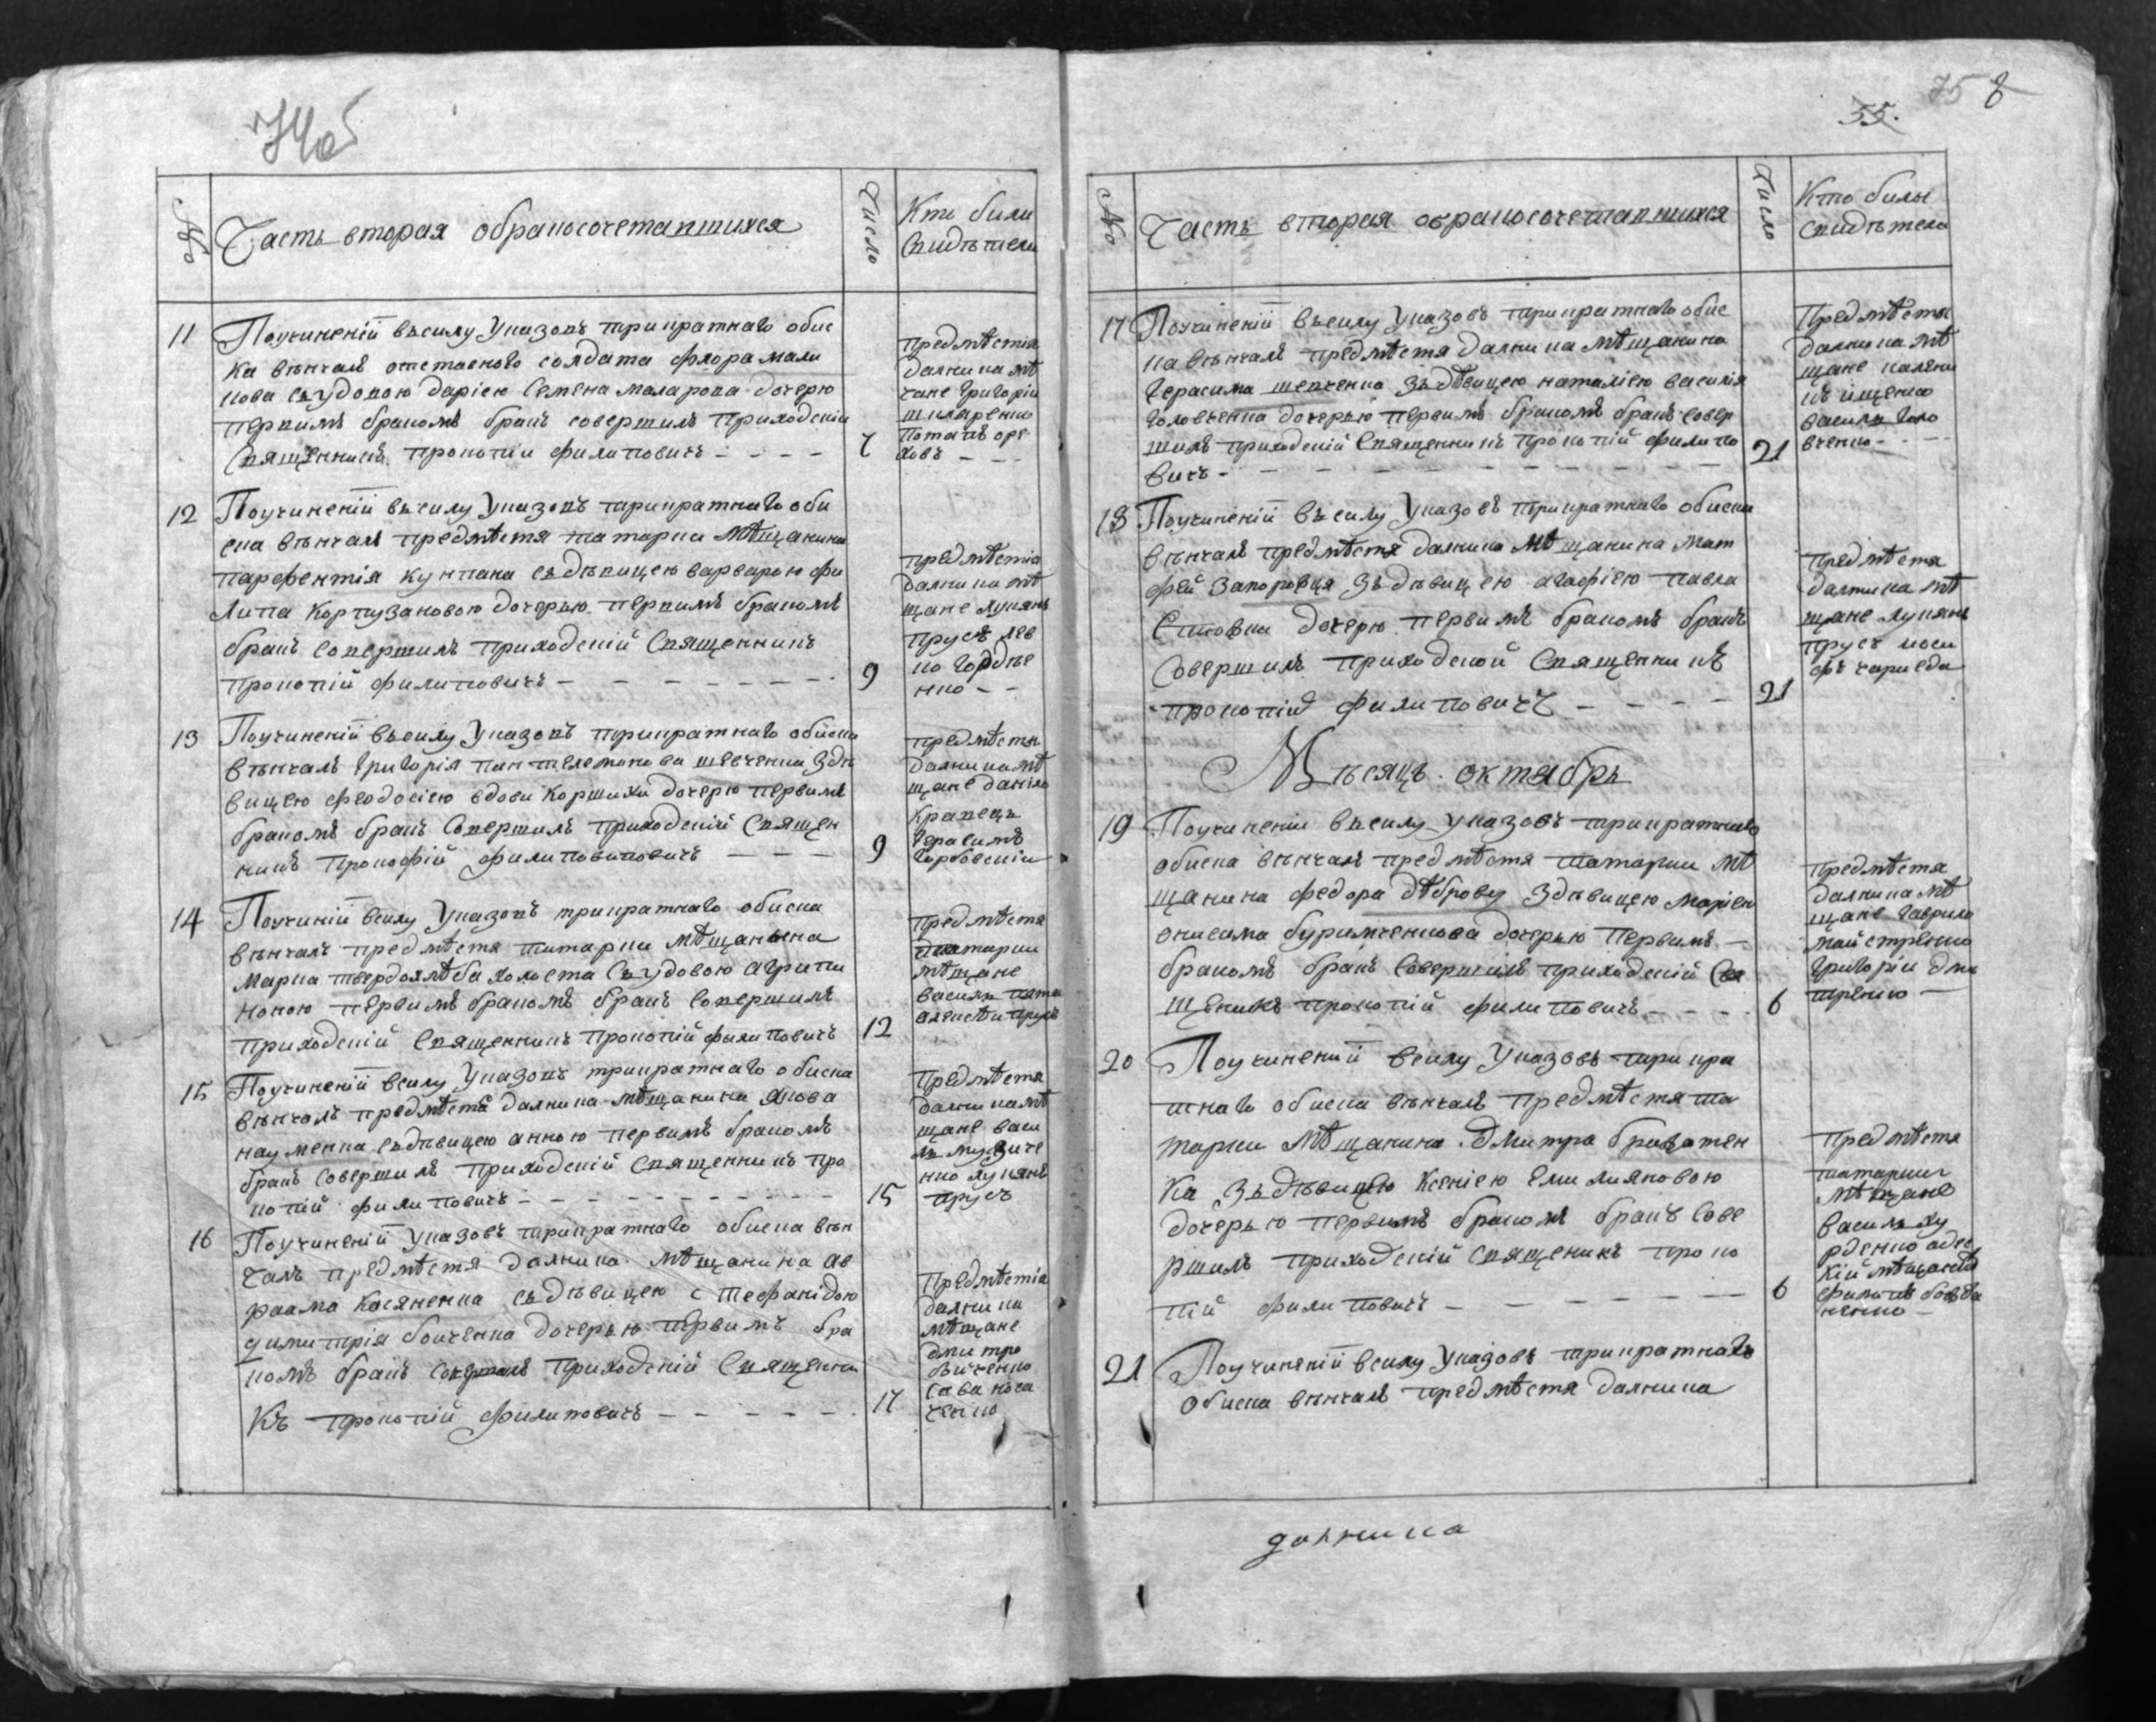 74об
№
Часть вторая обракосочетавшихся
Число
Кто били
Свидѣтели
11
Поучиненіи въсилу Указовъ трикратнаго обис
ка вѣнчалъ отставного солдата флора мали
нова съудовою Дарією Семена маларова дочерю
первимъ бракомъ бракъ совершилъ Приходскій
Священникъ прокопіи филиповичъ - - - -
7
предмѣстія
далника мѣ
чане Григорій
шкляренко
Потапъ оре
ховъ - - -
12
Поучиненіи въсилу Указовъ трикратнаго оби
ска вѣнчалъ предмѣстя татарки мѣщанина
парфентія кунпана съдѣвицею варварою фи
липа Корпузановою дочерью первимъ бракомъ
бракъ совершилъ приходскій Священникъ
прокопій филиповичъ - - - - - - -
9
предмѣстіа
далника мѣ
щане лукянъ
прусъ лев
ко горднѣе
нко - -
13
Поучиненіи въсилу Указовъ трикратнаго обиска
вѣнчалъ Григорія пантелемонова шевченка Здѣ
вицею феодосією вдови Коршихи дочерю первимъ
бракомъ бракъ Совершилъ приходскій Священ
никъ прокофій филиповиповичъ - - -
9
предмѣстя
далника мѣ
щане данило
Кравецъ
Герасимъ
Горбовскіи
14
Поучиніи всилу Указовъ трикратнаго обиска
вѣнчалъ предмѣстя татарки мѣщанина
Марка твердохлѣба холоста Съудовою агрипи
ною первимъ бракомъ бракъ Совершилъ
приходскій Священникъ прокопій филиповичъ
12
предмѣстя
татарки
мѣщане
василь
15
Поучиненіи всилу Указовъ трикратнаго обиска
вѣнчалъ предмѣстя далника мѣщанина Якова
науменка съдѣвицею анною первимъ бракомъ
бракъ совершилъ приходскій Священникъ про
копій филиповичъ - - - - - - - -
15
Предмѣстя
далника мѣ
щане васи
ль музиче
нко лукянъ
прусъ
16
Поучиненіи Указовъ трикратнаго обиска вѣн
чалъ предмѣстя далника мѣщанина ав
раама Касяненка съдѣвицею стефанідою
димитрія боиченка дочерью первимъ бра
комъ бракъ приходскій Священни
Къ прокопій филиповичъ - - - - -
17
Предмѣстіа
далника
мѣщане
дмитро
Сава коса
ченко
75 8
55.
№
Часть вторая обракосочетавшихся
Число
Кто билы
свидѣтели
17
Поучиненіи въсилу Указовъ трикратнаго обис
ка вѣнчалъ предмѣстя далника мѣщанина
Герасима шевченка Зъдѣвицею наталією василія
Головченка дочерью первимъ бракомъ бракъ Совер
шилъ приходскій Священникъ прокопій филипо
вичъ - - - - - - - - -
21
Предмѣстя
далника мѣ
щане каленн
къ ищенко
василь Голо
вченко - -
18
Поучиненіи въсилу Указовъ трикратнаго обиска
вѣнчалъ предмѣстя далника мѣщанина мат
фей Запорожця Зъдѣвицею агафією павла
дочерю первимъ бракомъ бракъ
Совершилъ приходской Священникъ
прокопій филиповичъ - - - -
21
предмѣстя
далника мѣ
щане лукянъ
прусъ иоси
фъ
Мѣсяцъ октябрь
19
Поучиненіи въсилу указовъ трикратнаго
обиска вѣнчалъ предмѣстя татарки мѣ
щанина федора дѣброву Здѣвицею марією
онисима буримченкова дочерью Первимъ -
бракомъ бракъ Совершилъ приходскій Свя
щеникъ прокопій филиповичъ - - -
6
предмѣстя
далника мѣ
щане Гаврило
майстренко
Григоріи дми
тренко -
20
Поучиненіи всилу Указовъ трикра
тнаго обиска вѣнчалъ предмѣстя та
тарки мѣщанина дмитра
Ка Зъдѣвицею Ксенією Емилияновою
дочерью первимъ бракомъ бракъ Сове
ршилъ приходскій священикъ проко
пій филиповичъ - - - - - -
6
предмѣстя
татарки
мѣщане
василь ку
рденко одес
кій мѣщанинъ
филипъ
21
Поучиненіи всилу Указовъ трикратнаго
обиска вѣнчалъ предмѣстя далника
далника